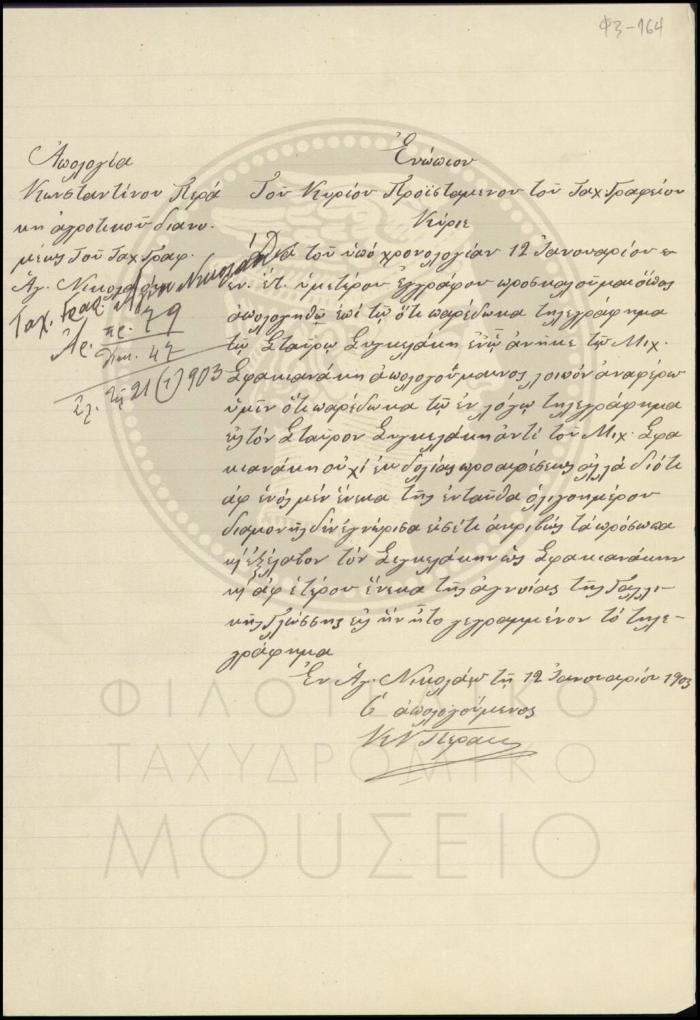 Φ3-164
Ἀπολογία
Κωνσταντίνου Περά
κη ἀγροτικοῦ διανο.
μέως τοῦ Ταχ. Γραφ.
Ἁγ. Νικολάου
Ταχ. Γραφ. Ἁγίου Νικολάου
Ἀρ. πρ. 79
διεκ. 47
ἐλ. τῇ 21 (1) 903
Ἐνώπιον
Τοῦ Κυρίου Προϊσταμένου τοῦ Ταχ. Γραφείου
Κύριε
τοῦ ὑπό χρονολογίαν 12 Ἰανουαρίου ε
ἐν. ἔτ. ὑμετέρου ἐγγράφου προσκαλοῦμαι ὅπως
ἀπολογηθῶ ἐπί τῷ ὅτι παρέδωκα τηλεγράφημα
τῷ Σταύρῳ Συγκελάκη ἐνῷ ἀνῆκε τῷ Μιχ.
Σφακιανάκη ἀπολογούμενος λοιπόν ἀναφέρω
ὑμῖν ὅτι παρέδωκα τῷ ἐν λόγῳ τηλεγράφημα
εἰς τόν Σταῦρον Συγκελάκη ἀντί τοῦ Μιχ. Σφα
κιανάκη οὐχί ἐκ δολίας προαιρέσεως ἀλλά διότι
ἀφ' ἑνός μέν ἕνεκα τῆς ἐνταῦθα ὀλιγοημέρου
διαμονῆς δέν ἐγνώρισα εἰσέτι ἀκριβῶς τά πρόσωπα
κ' ἐξέλαβον τόν Συγκελάκην ὡς Σφακιανάκην
κ' ἀφ' ἑτέρου ἕνεκα τῆς ἀγνοίας τῆς Γαλλι-
κῆς Γλώσσης εἰς ἥν ἦτο γεγραμμένον τό τηλε-
γράφημα
Ἐν Ἁγ. Νικολάῳ τῇ 12 Ἰανουαρίου 1903
Ὁ ἀπολογούμενος
Κ Ν Περακης
ΦΙΛΟΤΕΛΙΚΟ
ΤΑΧΥΔΡΟΜΙΚΟ
ΜΟΥΣΕΙΟ